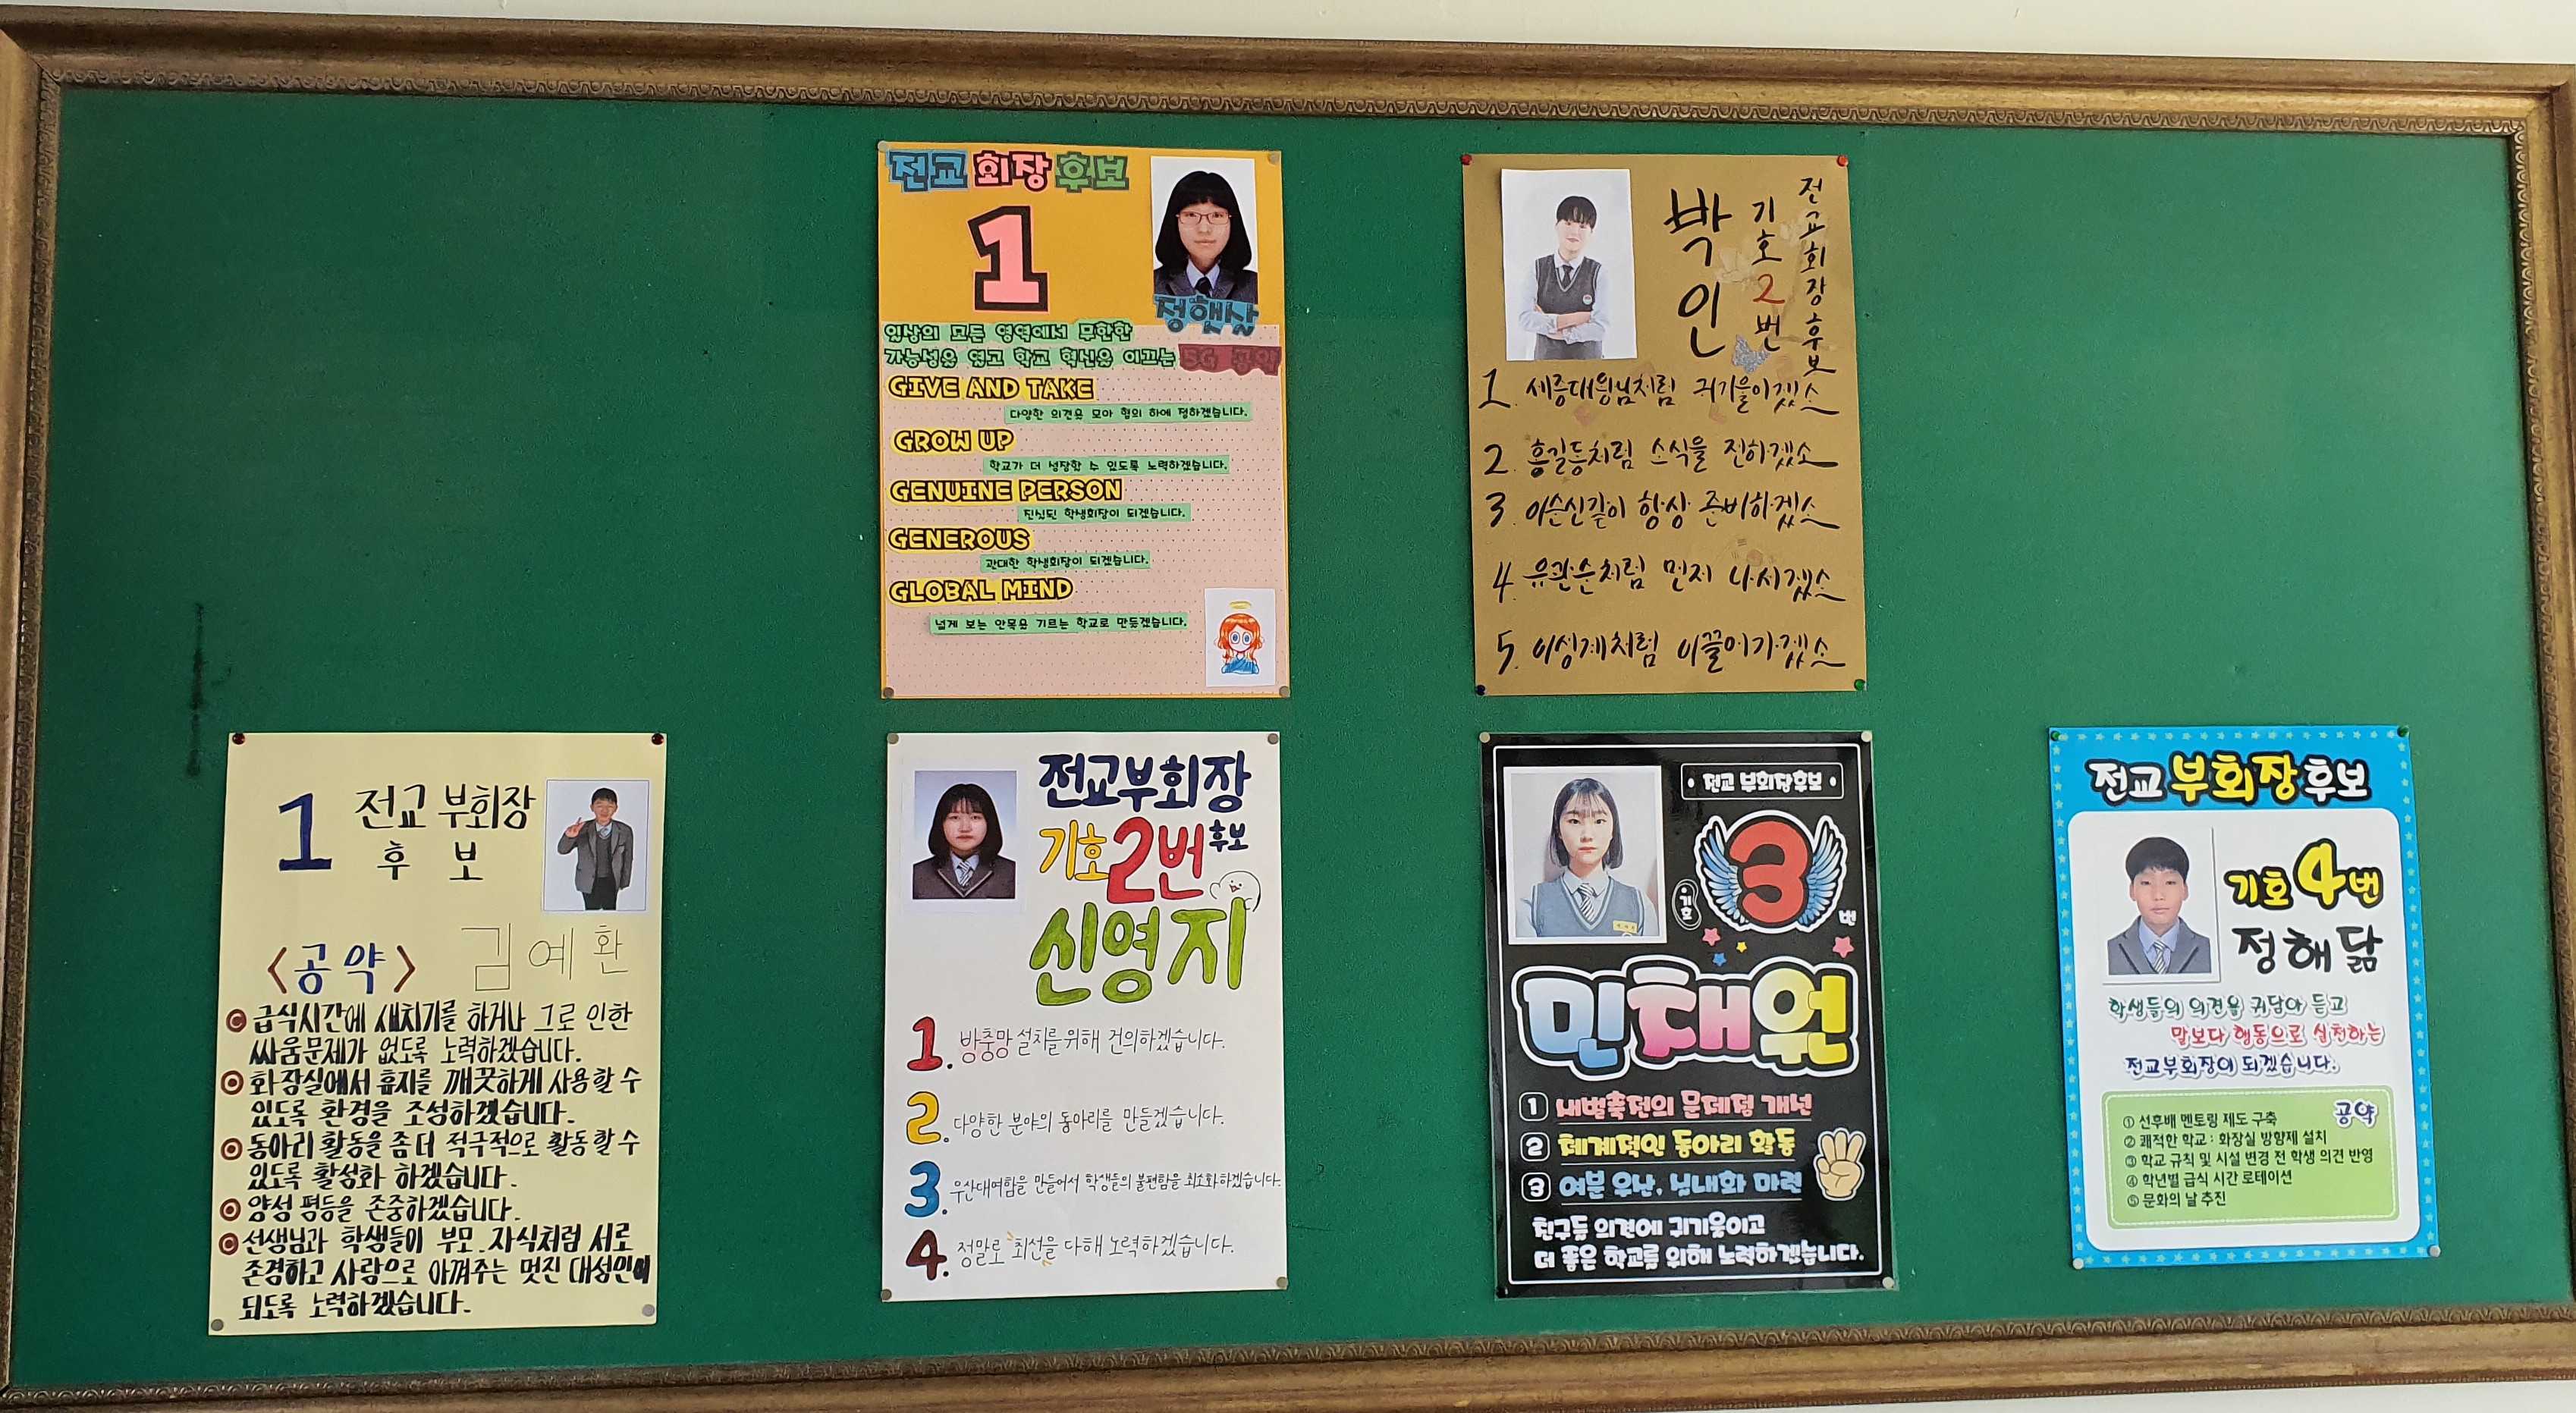 전교 회장 후보
1
정햇살
일상의 모든 영역에서 무한한
가능성을 열고 학교 혁신을 이끄는 5G 공약
GIVE AND TAKE
다양한 의견을 모아 협의 하에 정하겠습니다.
GROW UP
학교가 더 성장할 수 있도록 노력하겠습니다.
GENUINE PERSON
진실된 학생회장이 되겠습니다.
GENEROUS
관대한 학생회장이 되겠습니다.
GLOBAL MIND
넓게 보는 안목을 기르는 학교로 만들겠습니다.
전교회장후보
기호2번
박인
1. 세종대왕님처럼 귀기울이겠소
2. 홍길동처럼 소식을 전하겠소
3. 이순신같이 항상 준비하겠소
4. 유관순처럼 먼저 나서겠소
5. 이성계처럼 이끌어가겠소
1 전교 부회장
후 보
<공약> 김예환
급식시간에 새치기를 하거나 그로 인한
싸움문제가 없도록 노력하겠습니다.
화장실에서 휴지를 깨끗하게 사용할 수
있도록 환경을 조성하겠습니다.
동아리 활동을 좀 더 적극적으로 활동할 수
있도록 활성화 하겠습니다.
양성 평등을 존중하겠습니다.
선생님과 학생들이 부모.자식처럼 서로
존경하고 사랑으로 아껴주는 멋진 대성인이
되도록 노력하겠습니다.
전교부회장
기호2번 후보
신영지
1. 방충망 설치를 위해 건의하겠습니다.
2. 다양한 분야의 동아리를 만들겠습니다.
3. 우산대여함을 만들어서 학생들의 불편함을 최소화하겠습니다.
4. 정말로 최선을 다해 노력하겠습니다.
전교 부회장후보
기호 3 번
민채원
1 새벌축전의 문제점 개선
2 체계적인 동아리 활동
3 여분 우산, 실내화 마련
친구들 의견에 귀기울이고
더 좋은 학교를 위해 노력하겠습니다.
전교 부회장 후보
기호 4번
정해닮
학생들의 의견을 귀담아 듣고
말보다 행동으로 실천하는
전교부회장이 되겠습니다.
공약
① 선후배 멘토링 제도 구축
② 쾌적한 학교 : 화장실 방향제 설치
③ 학교 규칙 및 시설 변경 전 학생 의견 반영
④ 학년별 급식 시간 로테이션
⑤ 문화의 날 추진